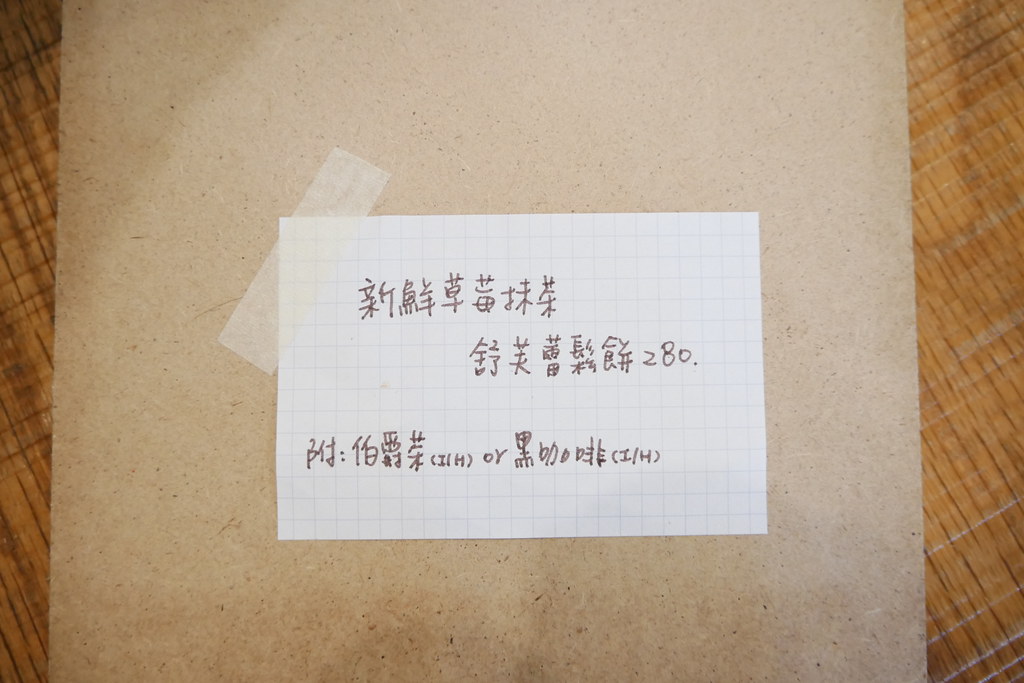 新鮮草莓抹茶
舒芙蕾鬆餅280.
附:伯爵茶(I/H) or 黑咖啡(I/H)